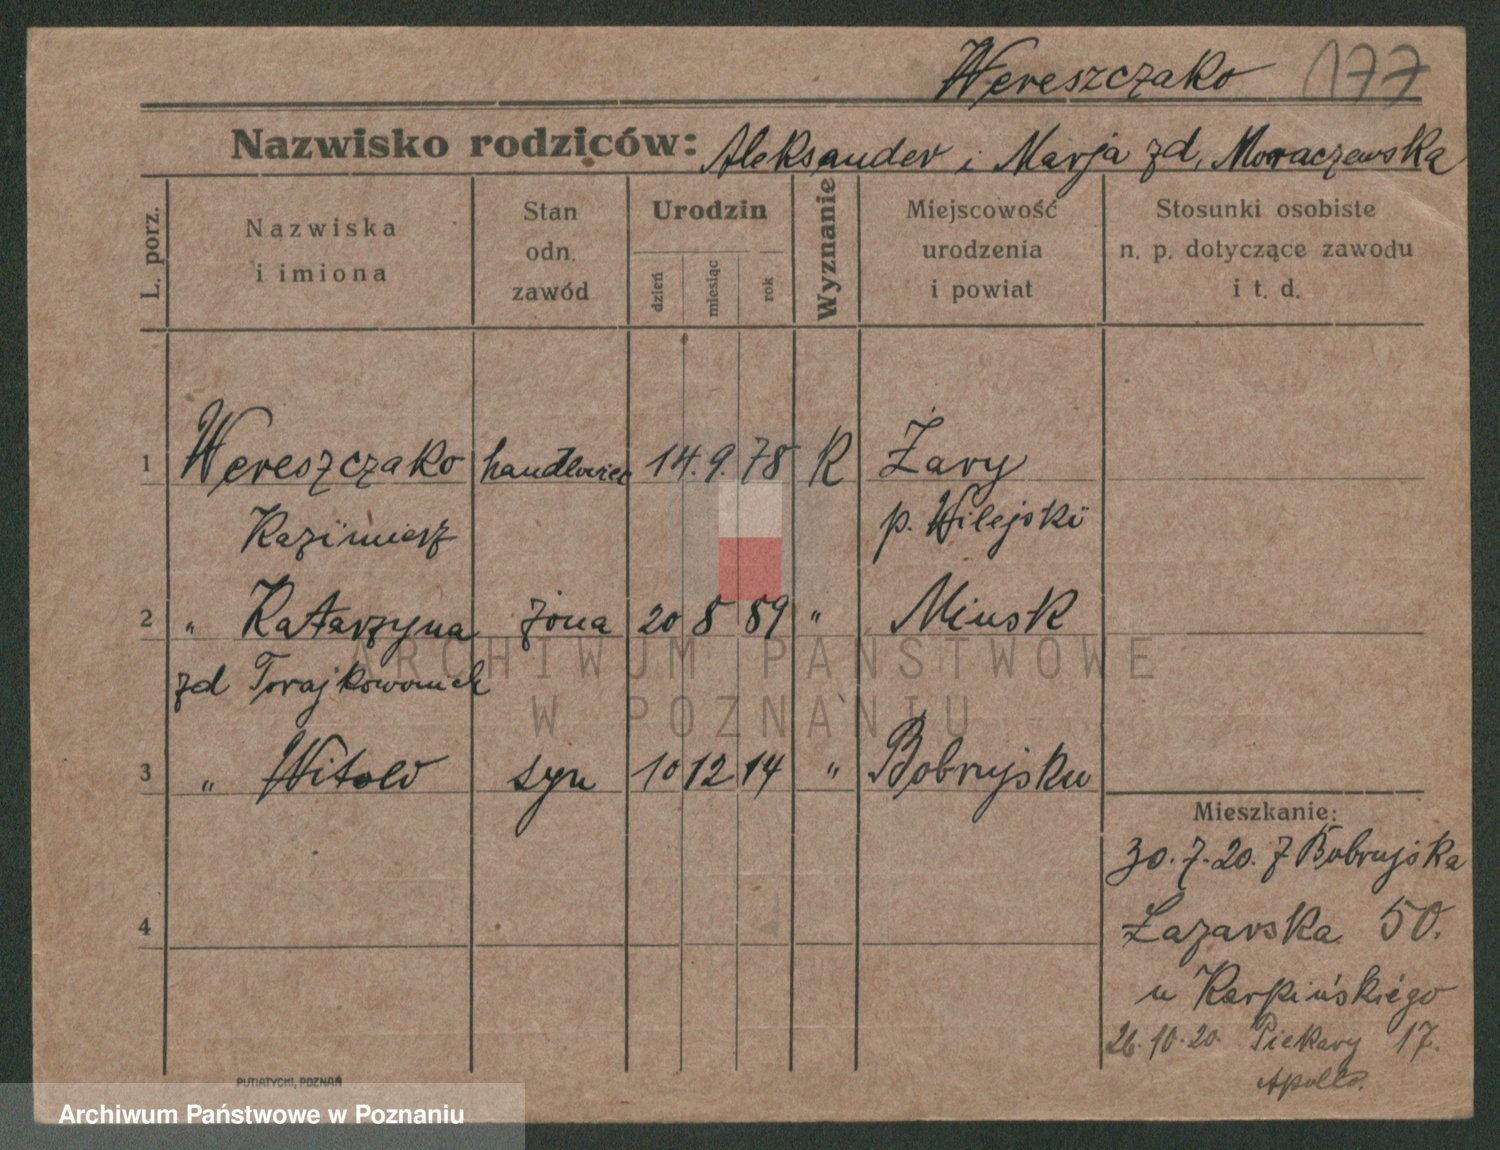 Wereszczako 177
Nazwisko rodziców: Aleksander i Marja zd. Moraczewska
L. porz.
Nazwiska
i imiona
Stan
odn.
zawód
Urodzin
dzień
miesiąc
rok
Wyznanie
Miejscowość
urodzenia
i powiat
Stosunki osobiste
n. p. dotyczące zawodu
i t. d.
1 Wereszczako handlowiec 14. 9. 78 R Żary
Kazimierz p. Wilejski
2 " Katarzyna żona 20 8 89 " Minsk
zd
3 " Witold syn 10 12 14 " Bobrujsku
Mieszkanie:
30. 7. 20. z Bobrujska
4
Łazarska 50.
u Karpińskiego
26. 10. 20 Piekary 17.
Apollo.
PUTIATYCKI, POZNAŃ
ARCHIWUM PAŃSTWOWE
W POZNANIU
Archiwum Państwowe w Poznaniu